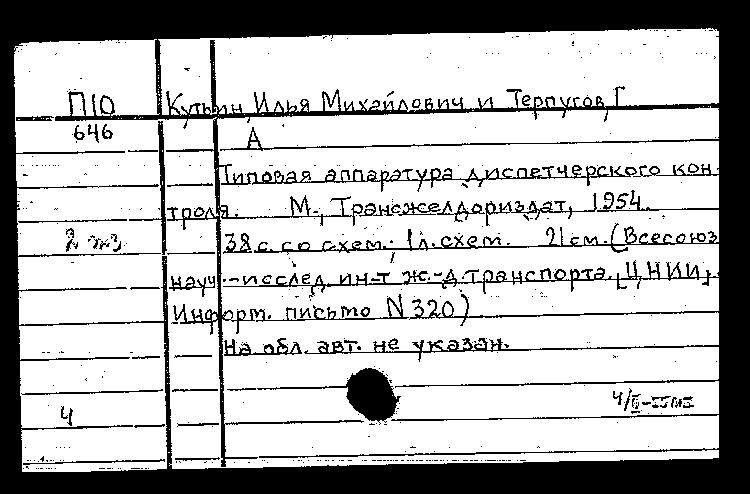 П10 Кутьин, Илья Михайлович и Терпугов, Г
646 А
Типовая аппаратура диспетчерского кон-
троля. М., Трансжелдориздат, 1954.
2 экз 38 с. со схем.; 1 л. схем. 21 см. (Всесоюз
науч.-исслед. ин-т ж.-д. транспорта. [ЦНИИ].
Информ. письмо N 320)
На обл. авт. не указан.
4